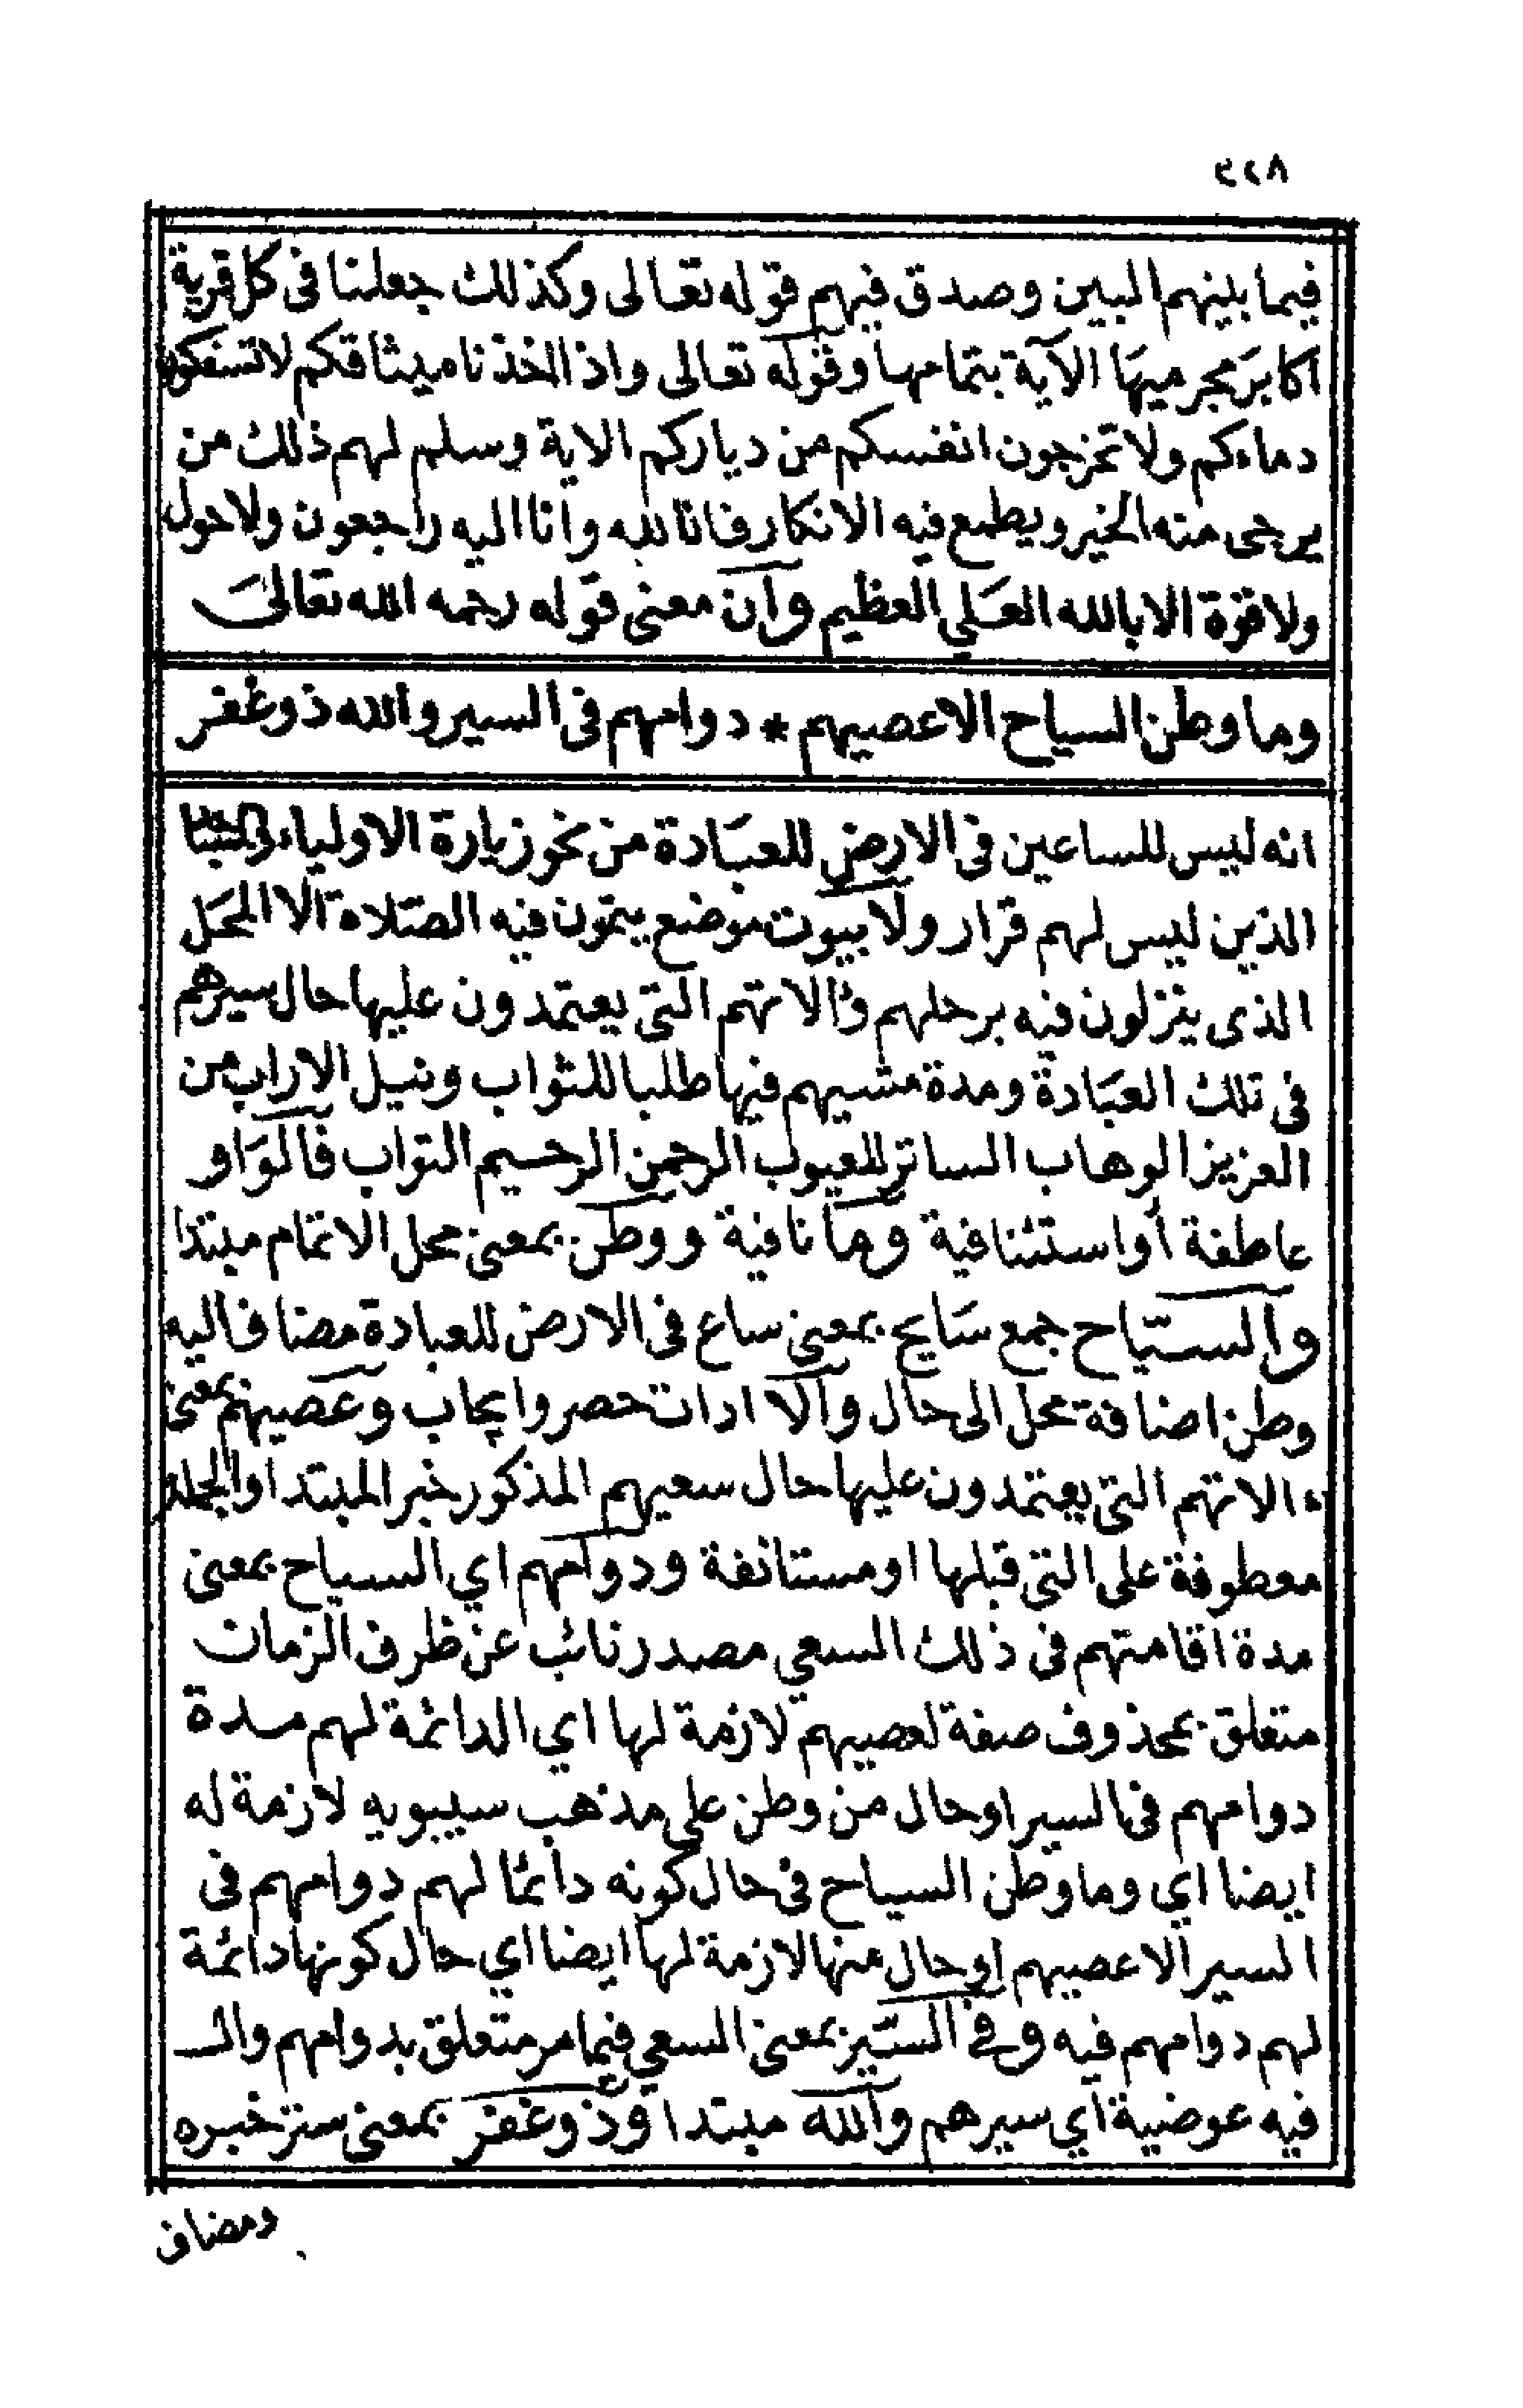 ٣٢٨
فيما بينهم البين وصدق فيهم قوله تعالى وكذلك جعلنا فى كل قرية
اكابرَ مجرميهَا الآية بتمامها وقوله تعالى واذا اخذنا ميثاقكم لاتسفكون
دماءكم ولا تخرجون انفسكم من دياركم الاية وسلم لهم ذلك من
يرجى منه الخير ويطمع فيه الانكار فانا لله وانا اليه راجعون ولاحول
ولا قوّة الا بالله العَلي العظيم وان معنى قوله رحمه الله تعالىَ
وما وطن السياح الا عصيهم * دوامهم فى السير والله ذو غفر
انه ليس للساعين فى الارض للعبَادة من نحو زيارة الاولياء
الذين ليس لهم قرار ولا بيوت موضع يتمون فيه الصَلاة الا المحَل
الذى ينزلون فيه برحلهم وءالاتهم التى يعتمدون عليها حال سيرهم
فى تلك العبَادة ومدة مشيهم فيها طلبا للثواب ونيل الاراب من
العزيز الوهاب الساتر للعيوب الرحمن الرحيم التواب فالوَاو
عاطفة أو استئنافية وما نافية ووطن بمعنى محل الاتمام مبتدا
والسيّاح جمع سَايح بمعنى ساع فى الارض للعبادة مضاف اليه
وطن اضافة محل الى حال والا ادات حصر وايجاب وعصيهم بمعنى
ءالاتهم التى يعتمدون عليها حال سعيهم المذكور خبر المبتدا والجملة
معطوفة على التى قبلها او مستانفة ودوامهم اي السياح بمعنى
مدة اقامتهم فى ذلك السعي مصدر نائب عن ظرف الزمان
متعلق بمحذوف صفة لعصيهم لازمة لها اي الدائمة لهم مدة
دوامهم فى السير او حال من وطن على مذهب سيبويه لازمة له
ايضا اي وما وطن السياح فى حال كونه دائما لهم دوامهم فى
السير الا عصيهم او حال منها لازمة لها ايضا اي حال كونها دائمة
لهم دوامهم فيه وفي السّير بمعنى السعي فيما مر متعلق بدوامهم وال
فيه عوضية اي سيرهم والله مبتدا وذو غفر بمعنى ستر خبره
ومضاف